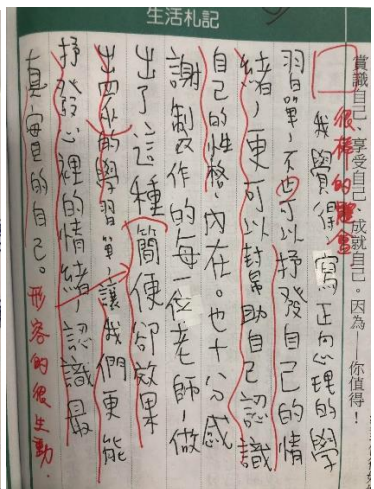 生活札記
賞識自己、享受自己、成就自己。因為——你值得！
很棒的體會
我覺得寫正向心理的學
習單，不也可以抒發自己的情
緒，更可以幫助自己認識
自己的性格，內在。也十分感
謝製作的每一位老師，做
出了這種簡便卻效果
的學習單，讓我們更能
抒發心裡的情緒，認識最
真實的自己。
形容的很生動.